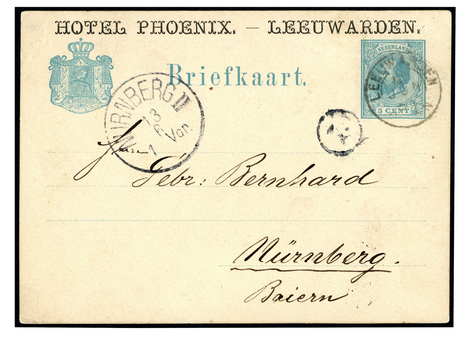 HOTEL PHOENIX. — LEEUWARDEN.
NEDERLAND
Briefkaart.
5 CENT
LEEUWARDEN
NÜRNBERG II
13
Vor.
1
Gebr: Bernhard
Nürnberg.
Baiern